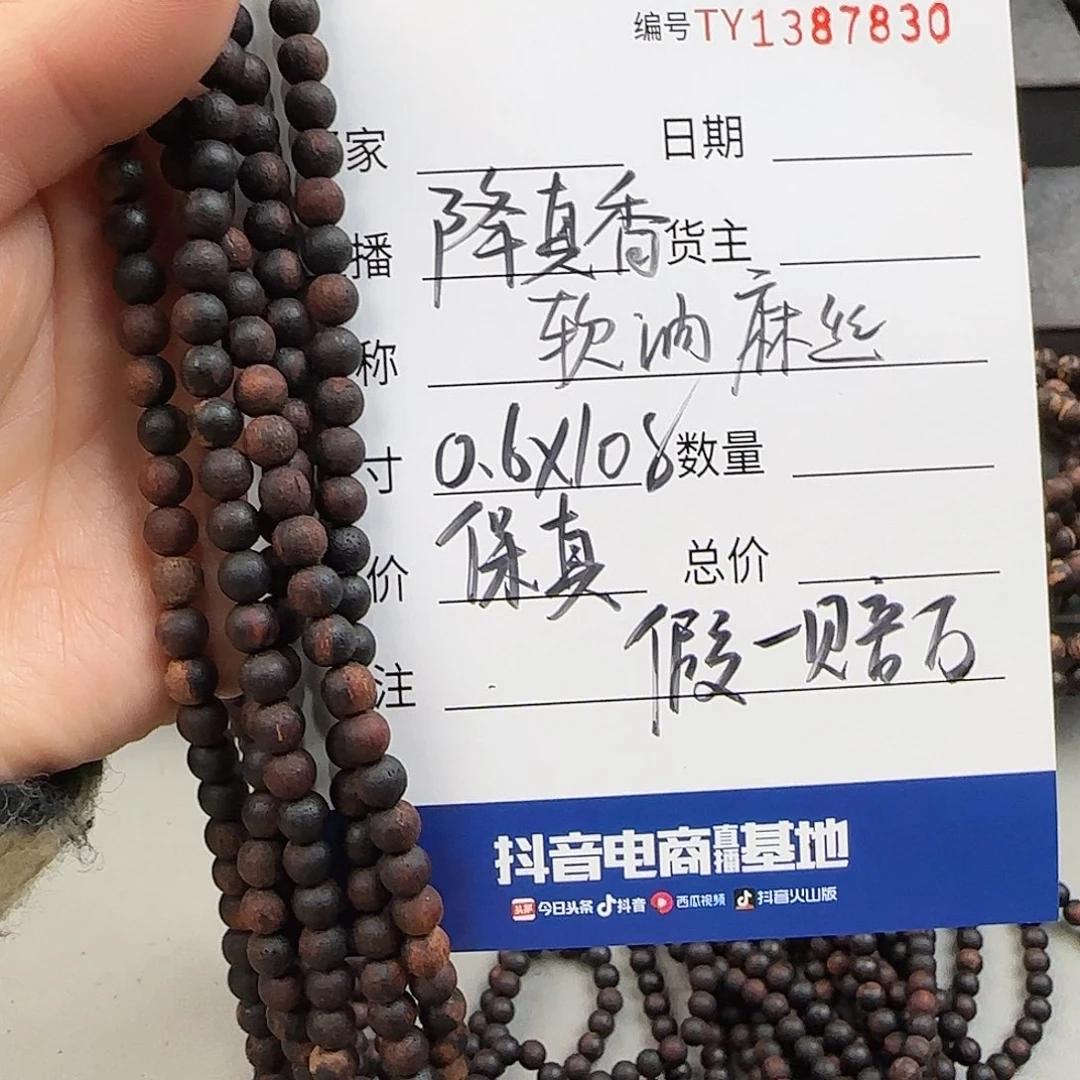 编号TY1387830
家 日期
播 降真香 货主
称 软油麻丝
寸 0.6X108 数量
价 保真 总价
注 假一赔百
抖音电商直播基地
头条 今日头条 抖音 西瓜视频 抖音火山版